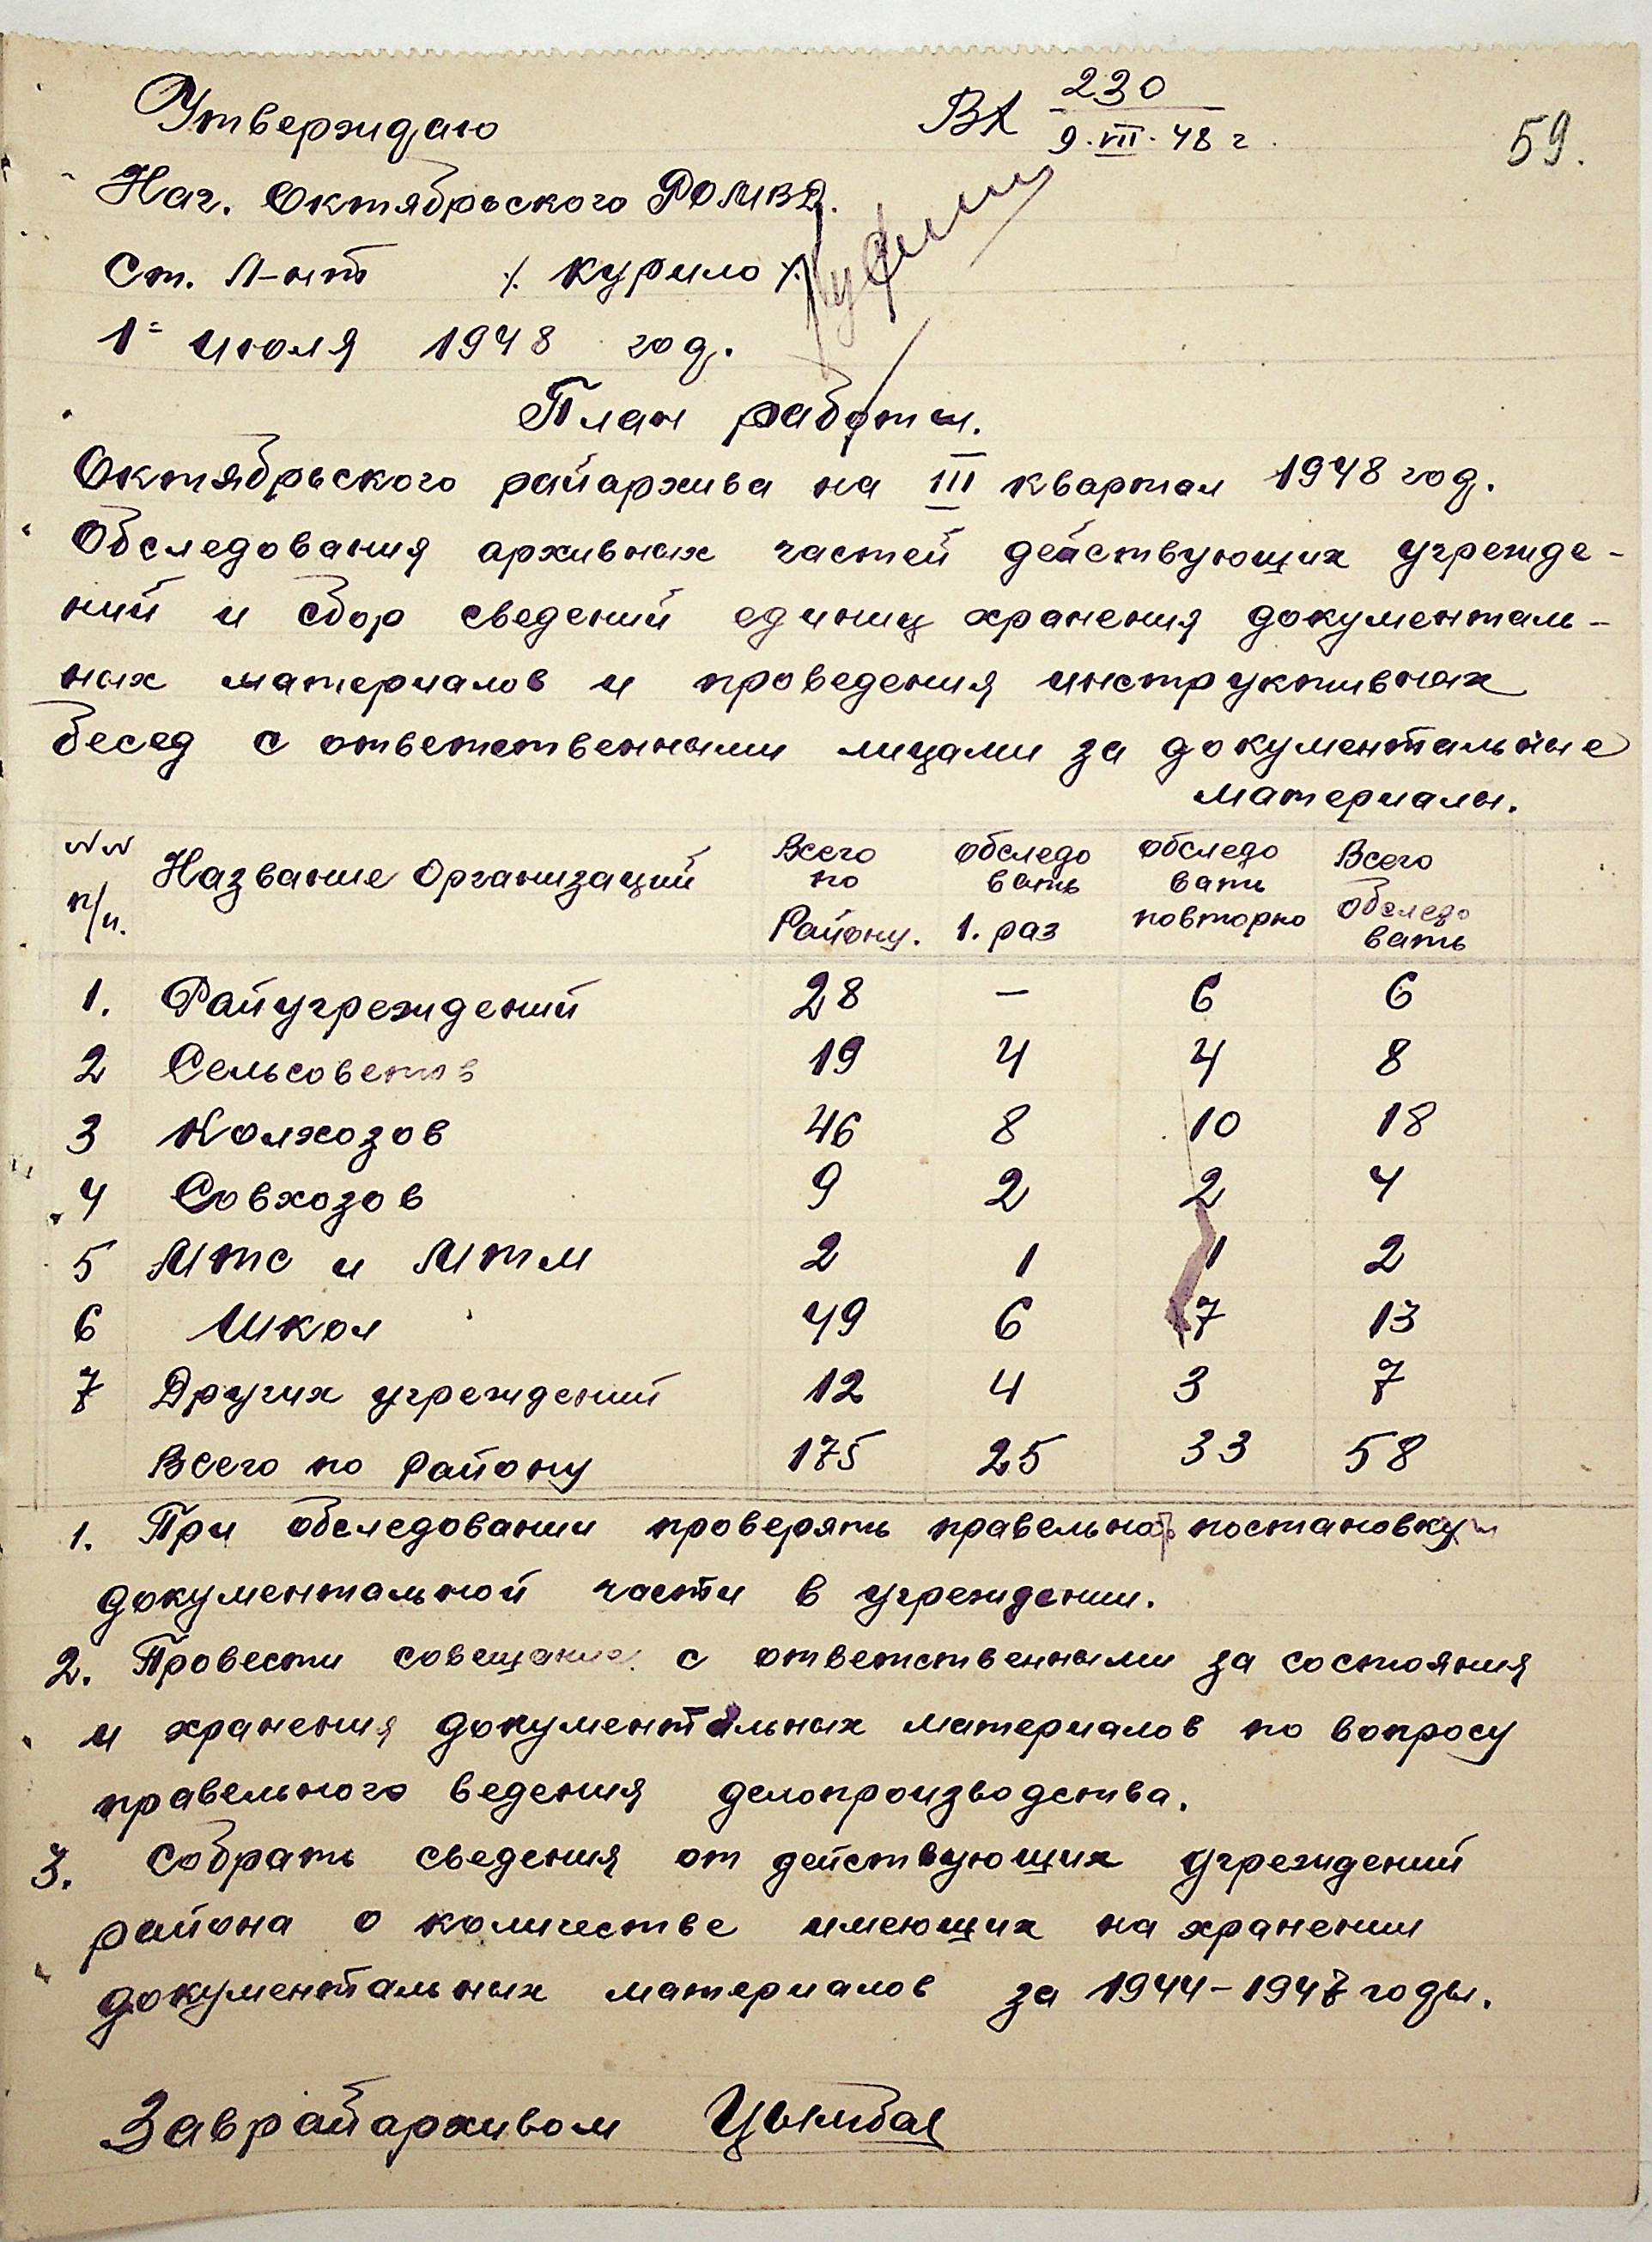 Утверждаю
Вх 230
9.VII.48 г.
59.
Нач. Октябрьского РОМВД.
Ст. Л-нт /. Курило /.
1= июля 1948 год.
План работы.
Октябрьского райархива на III квартал 1948 год.
Обследования архивных частей действующих учрежде-
ний и сбор сведений единиц хранения документаль-
ных материалов и проведения инструктивных
бесед с ответственными лицами за документальные
материалы.
№№ п/п. Название Организаций Всего по Району. обследовать 1. раз обследовать повторно Всего обследовать
1. Райучреждений 28 — 6 6
2 Сельсоветов 19 4 4 8
3 Колхозов 46 8 10 18
4 Совхозов 9 2 2 4
5 МТС и МТМ 2 1 1 2
6 Школ 49 6 7 13
7 Других учреждений 12 4 3 7
Всего по Району 175 25 33 58
1. При обследовании проверять правельность постановку
документальной части в учреждении.
2. Провести совещание с ответственными за состояния
и хранения документальных материалов по вопросу
правельного ведения делопроизводства.
3. Собрать сведения от действующих учреждений
района о количестве имеющих на хранении
документальных материалов за 1944-1947 годы.
Заврайархивом Цымбал